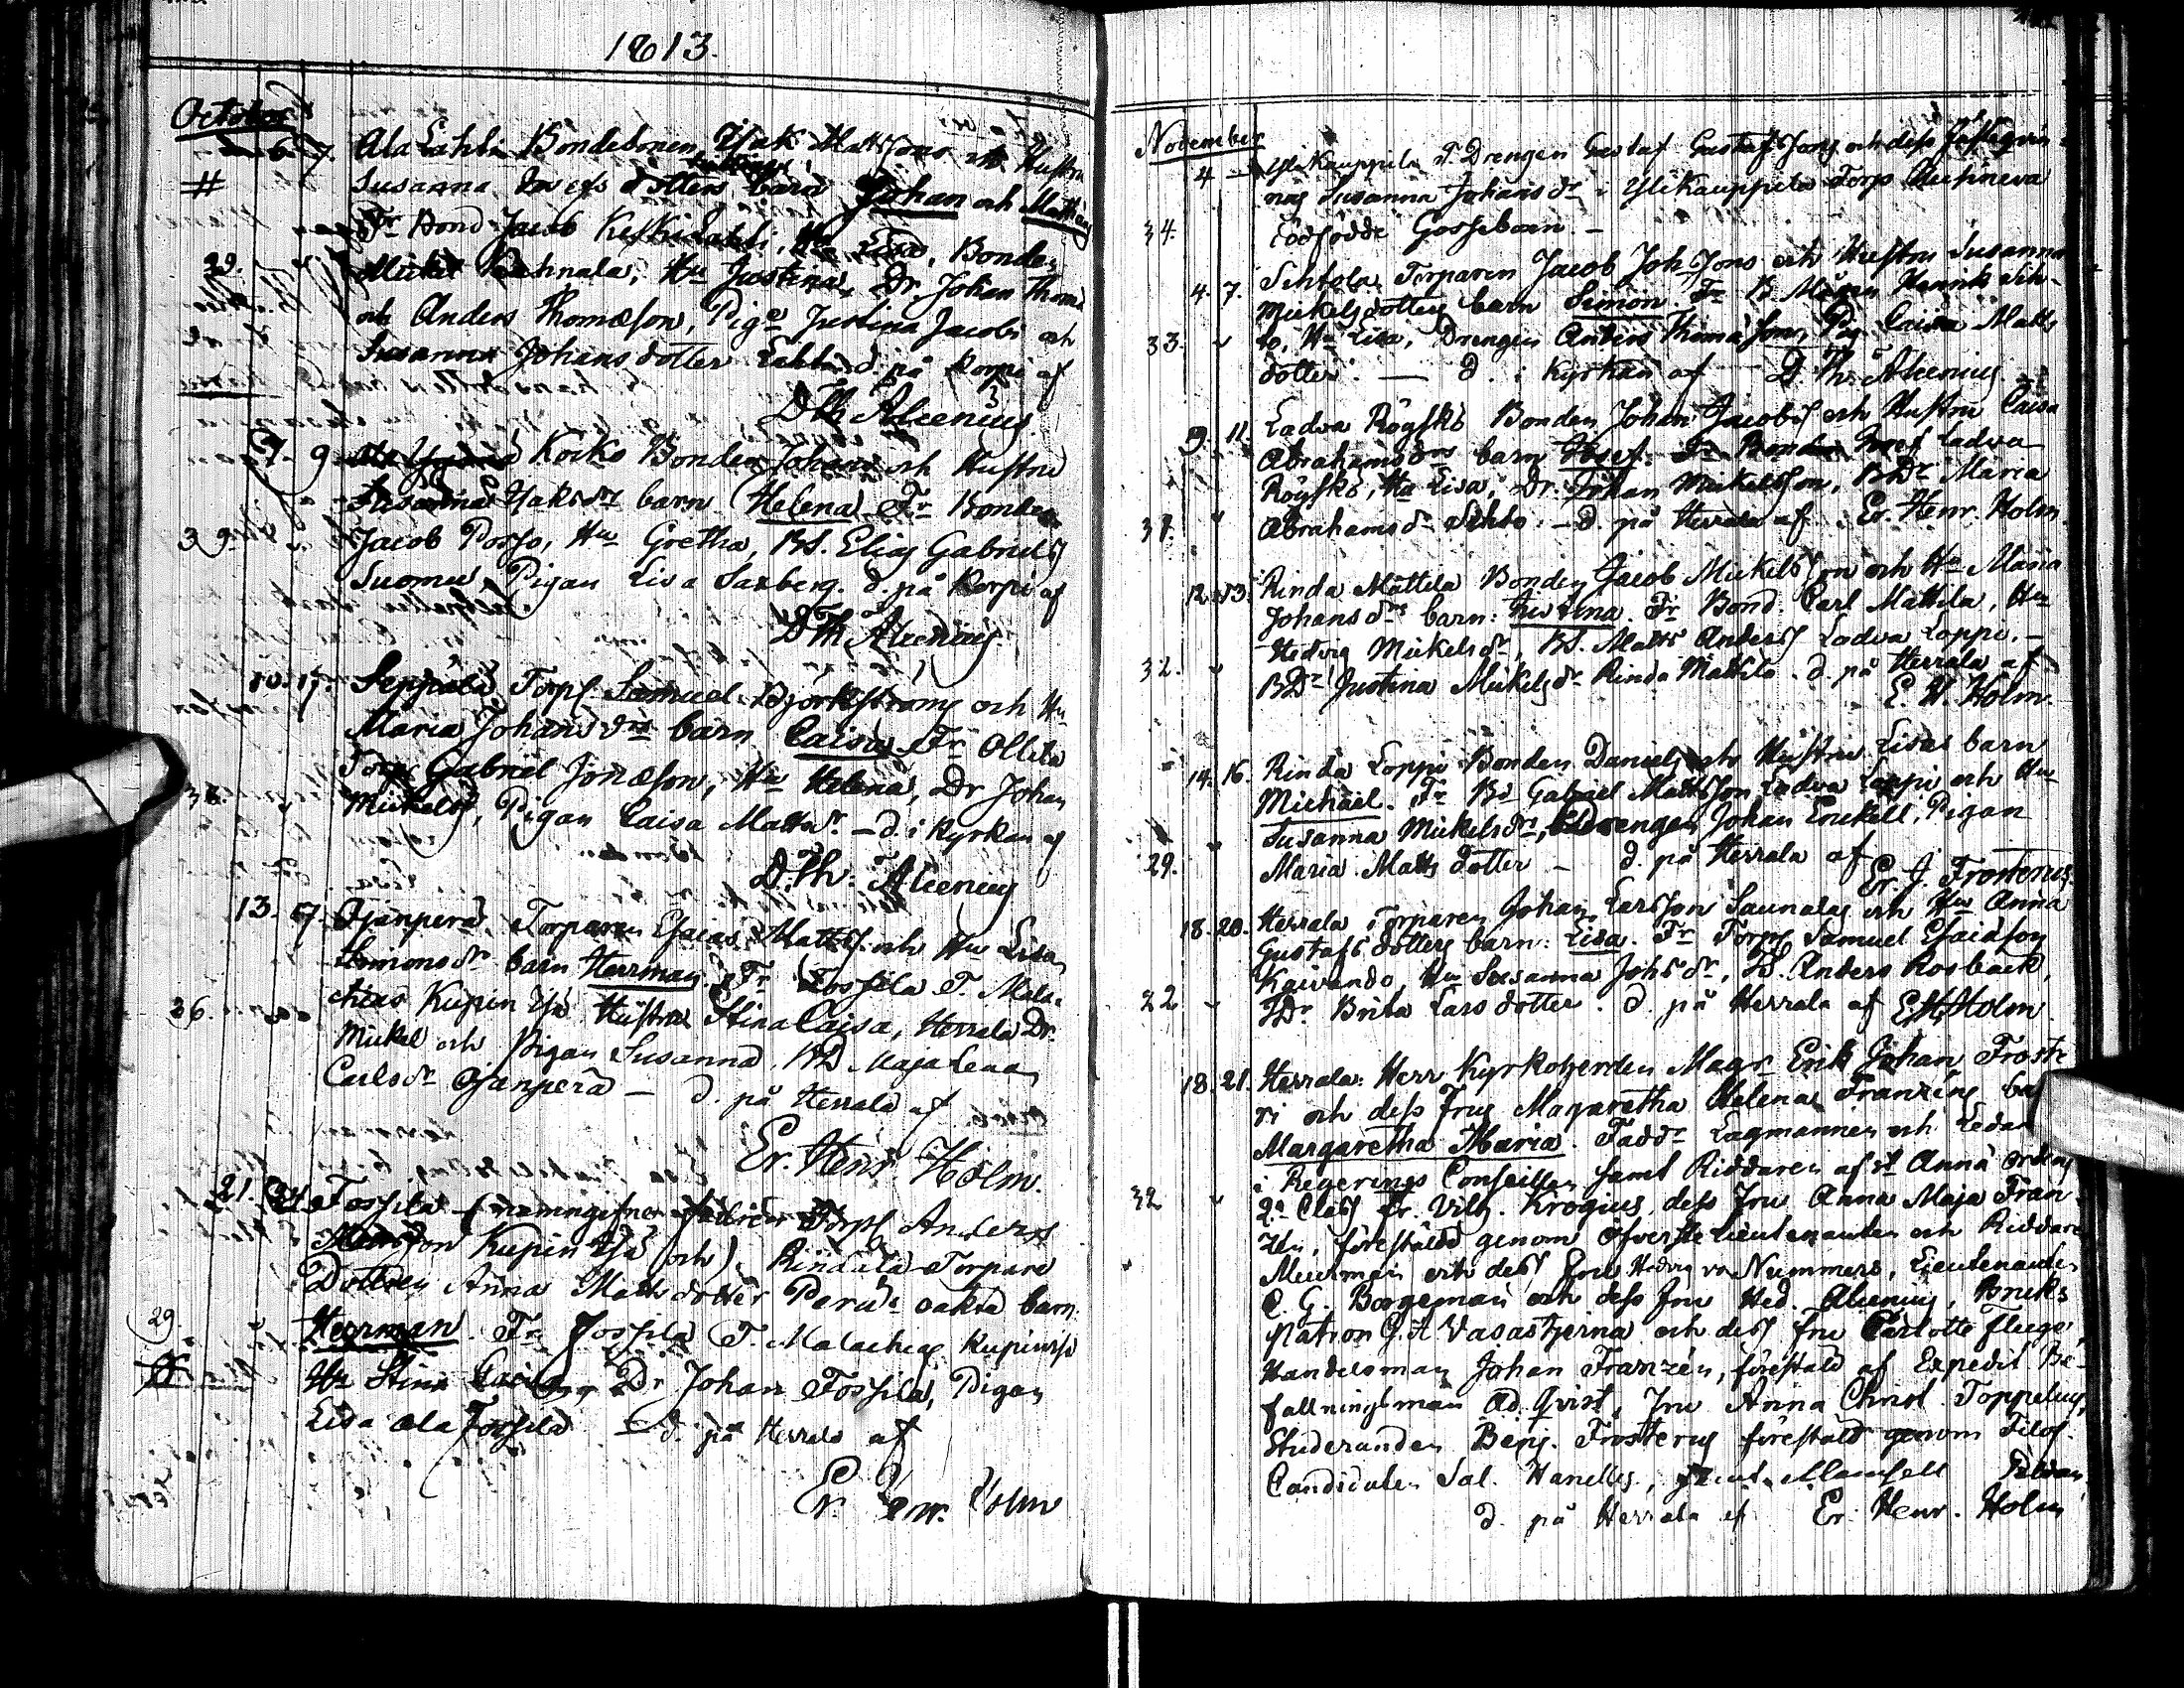 1813.
October
6. 7. Ala Lahti Bondesonen Isak Mattsons och Hustru
# Susanna dotters tvillinge barn Johan och Matthias
Fr Bond Jacob Keskilahti, Hu Lisa, Bonden
29. Mickel Hu Justina, Dr. Johan Thomæ
och Anders Thomæson, Pige Justina Jacobs och
Susanna Johans dotter Lahti d. på Korpi af
D Th Alcenius
7. 9 Koiko Bonden Johans och Hustru
Susanna Isaksdr barn Helena Fr Bonden
39. Jacob Posso, Hu Gretha, BS. Elias Gabriels
Suomu, Pigan Lisa Saxberg. d. på Korpi af
D Th Alcenius
10. 17. Seppälä Torp. Samuel Björkströms och Hu
Maria Johansdrs barn Caisa Fr Ollila
Torp Gabriel Jonæson, Hu Helena, Dr Johan
Mickels, Pigan Caisa Mattsdr. – d. i Kyrkan af
D. Th. Alcenius
13. 17. Ojanperä Torparen Esaias Matts. och Hu Lisa
Simonsdr barn Herrman. Fr Fossila T. Mala-
36. chias Kupin Hustru Stina Caisa, Herrala Dr.
Mickel och Pigan Susanna, BD Maja Lena
Carlsdr Ojanperä – d. på Herrala af
Er. Henr. Holm.
21. 24. Fossila (namngifne fadren Torp. Anders
Kupin och) Rindala Torpare
Dottren Anna Matts dotter Peru oäkta barn.
29. Herrman. Fr Fossila T. Malachias
# Hu Stina Caisa, Dr Johan Fossila, Pigan
Lisa Ala Fossila – d. på Herrala af
Er. Henr. Holm
November
4 – Yli Kauppila T. Drengen Gustaf Gustafssons och dess Fästeqvin-
nas Susanna Johansdr i Ylikauppila Torp
34. Dödfödde Gossebarn. –
4. 7. Sihtola Torparen Jacob Joh Sons och Hustru Susanna
Mickelsdotters barn Simon. Fr B. Mågen Henrik Sih-
33. to, Hu Lisa, Drengen Anders Thomason, Pig Caisa Matts
dotter. – d. i Kyrkan af D. Th. Alcenius
9. 11. Ladva Röyskö Bonden Johan Jacobs och Hustru Caisa
Abrahamsdrs barn Josef. Fr Bonden Josef Ladva
Röyskö, Hu Lisa, Dr. Johan Mickelsson, BDr Maria
37. Abrahamsdr Sihto. – d. på Herrala af Er. Henr. Holm.
12. 13. Rinda Mattila Bonden Jacob Mickelsson och Hu Maria
Johansdrs barn: Justina. Fr Bond. Carl Mattila, Hu
Hedvig Mickelsdr, BS. Matts Anders Ladva Loppi. –
32. BDr Justina Mickelsdr Rinda Mattila. d. på Herrala af
E. H. Holm.
14. 16. Rinda Loppi Bonden Daniels och Hustru Lisas barn
Michaël. Fr Bd Gabriel Mattsson Ladva Loppi och Hu
Susanna Mickelsdr, Drengen Johan Enckell, Pigan
29. Maria Matts dotter – d. på Herrala af
Er. J. Frosterus.
18. 20. Herrala Torparen Johan Larsson Saunalas och Hu Anna
Gustafs dotters barn: Lisa. Fr Torp. Samuel Esaiason
Kaivando, Hu Susanna Johsdr, BS. Anders Rosback,
22 TDr Brita Lars dotter. d. på Herrala af E. H. Holm.
18. 21. Herrala: Herr Kyrkoherden Magr Erik Johan Froste-
ri och dess Frus Magaretha Helena Franzéns
Margaretha Maria. Faddr Lagmannen och
i Regerings Conseillen samt Riddaren af St Annä Ordens
32 2a Class Fr. Vilh. Krogius, dess Fru Anna Maja Fran-
zén, föreställd genom Öfverste Lieutenanten och Riddare
Meurman och dess Fru Hedvig von Nummers, Lieutenanten
C. G. Borgeman och dess Fru Hed. Alcenius, Bruks
patron G. A Vasastjerna och dess fru Carlotte Flege,
Handelsman Johan Franzén, föreställd af Expedit. Be-
fallningsman Ad. Qvist, Fru Anna Christ. Toppelius,
Studeranden Benj. Frosterus föreställd genom Filos.
Candidaten Sal. Hanelles, samt Mamsell
d. på Herrala af Er. Henr. Holm